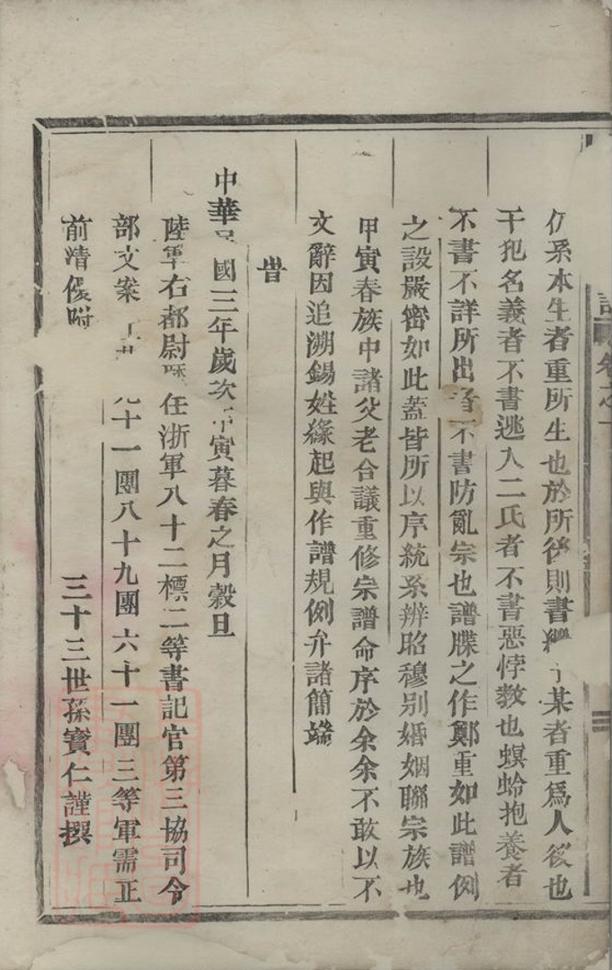 仍系本生者重所生也於所後則書繼子某者重為人後也
干犯名義者不書逃入二氏者不書惡悖教也螟蛉抱養者
不書不詳所出者不書防亂宗也譜牒之作鄭重如此譜例
之設嚴密如此蓋皆所以序統系辨昭穆別婚姻聯宗族也
甲寅春族中諸父老合議重修宗譜命序於余余不敢以不
文辭因追溯錫姓緣起與作譜規例弁諸簡端
時
中華民國三年歲次甲寅暮春之月穀旦
陸軍右都尉 任浙軍八十二標二等書記官第三協司令
部文案 九十一團八十九團六十一團三等軍需正
前清優附
三十三世孫寶仁謹撰